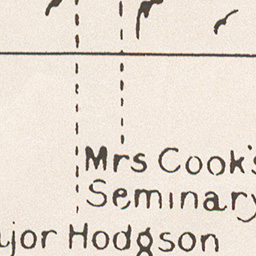 Mrs Cook's
Seminary
ajor Hodgson